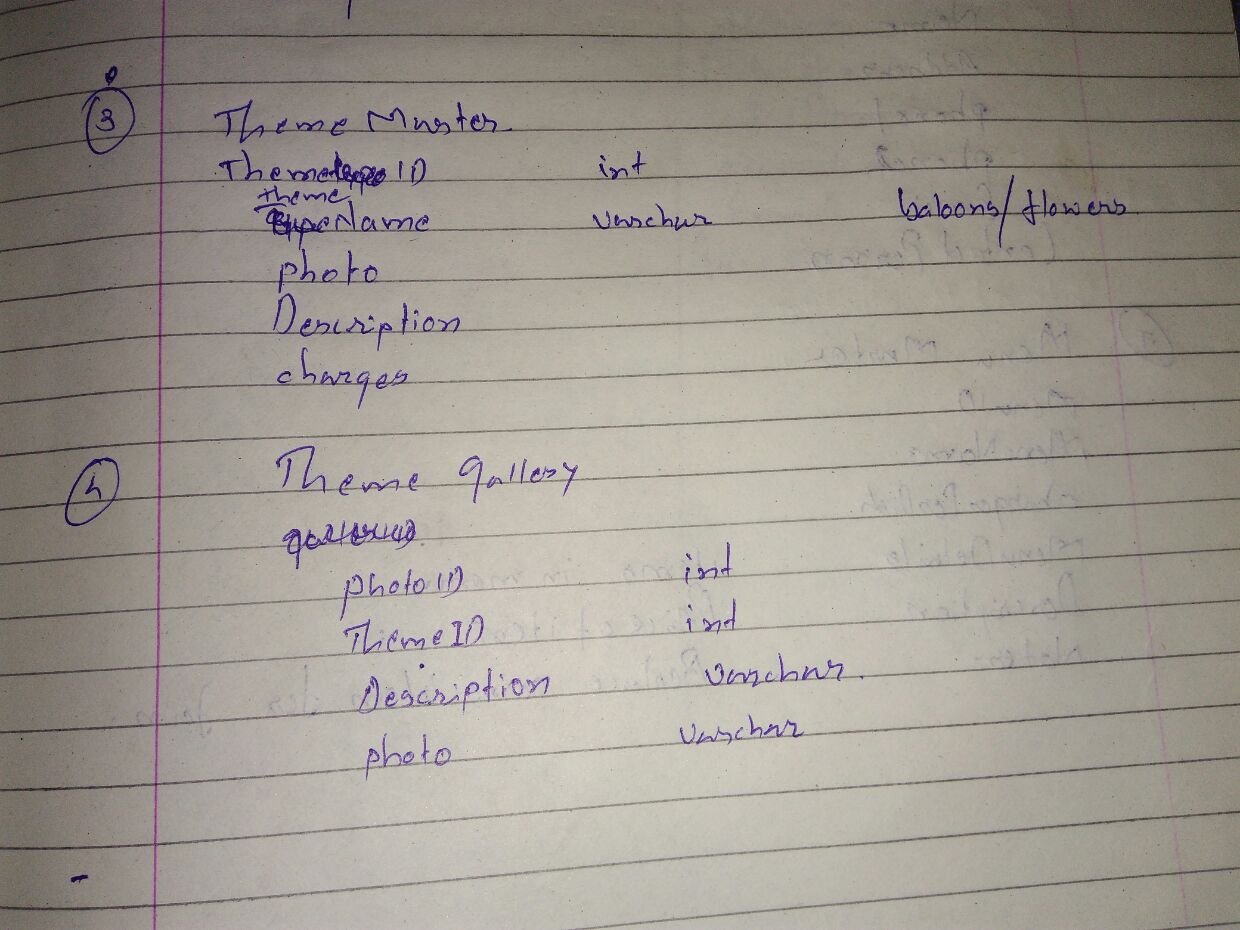 3
Theme Master
ThemeID int
themeName varchar baloons/flowers
photo
Description
charges
4
Theme gallery
photoID int
ThemeID int
Description varchar.
photo varchar